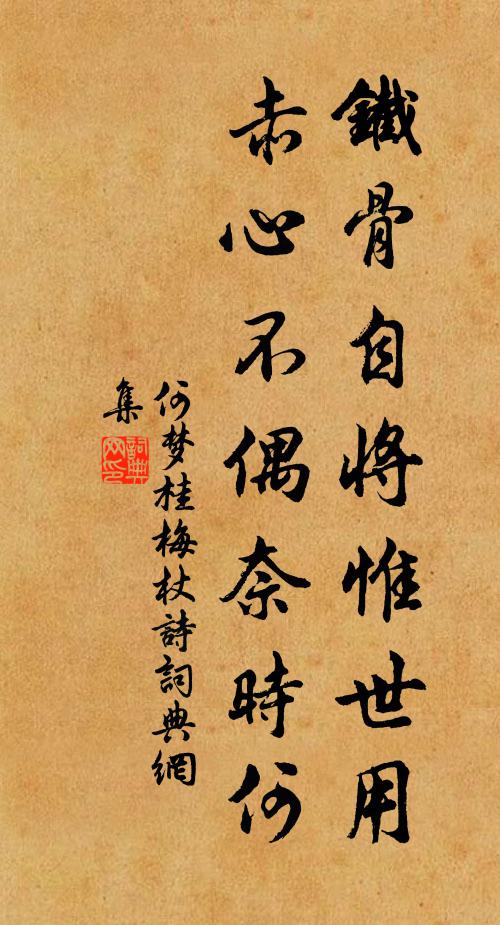 鐵骨自將惟世用
赤心不偶奈時何
何梦桂梅杖詩詞典網
集
詞典
网印